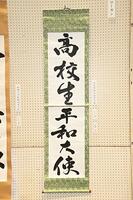 高校生平和大使